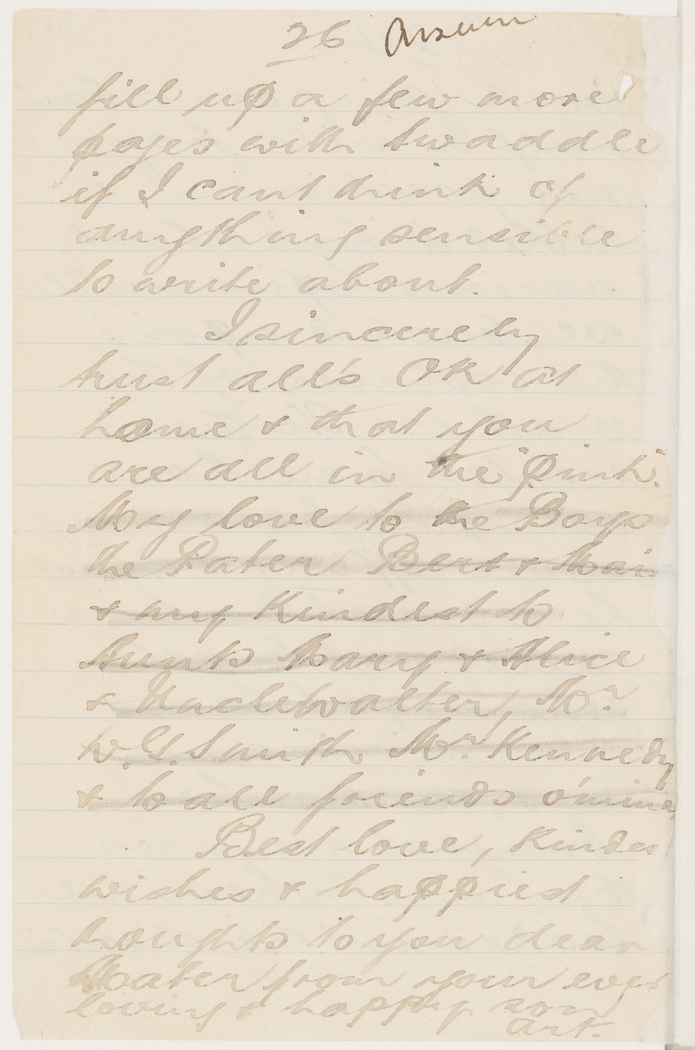 26 Answer
fill up a few more
pages with twaddle
if I cant think of
anything sensible
to write about.
I sincerely
trust all's OK at
home & that you
are all in the "pink".
My love to the Boys
the Pater Bert &
& my Kindest to
Aunts Mary & Alice
& Uncle Walter, Mr
W.G. Smith Mr. Kennedy
& to all friends o'mine
Best love, Kindest
wishes & happiest
thoughts to you dear
Mater from your ever
loving & happy son
Art.